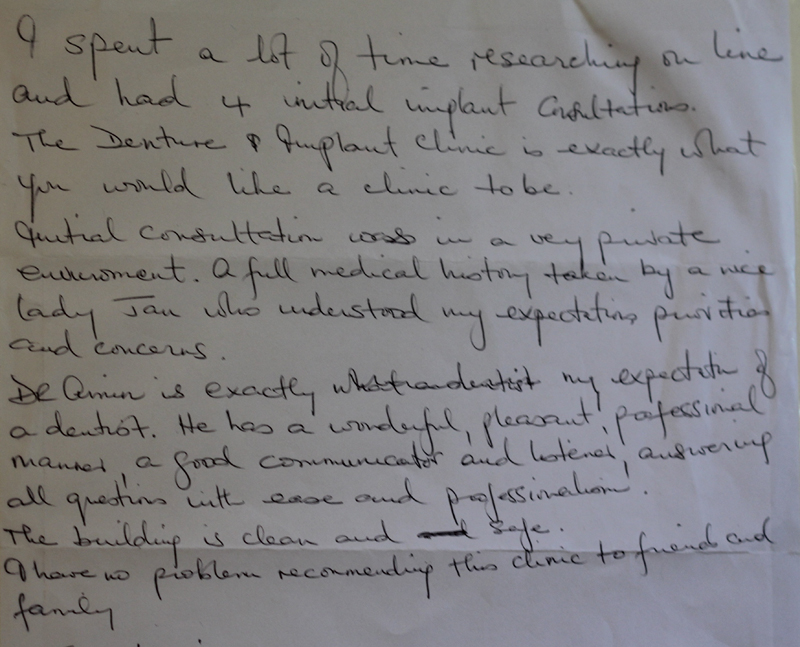 I spent a lot of time researching on line
and had 4 initial implant Consultations.
The Denture & Implant Clinic is exactly what
you would like a clinic to be.
Initial consultation was in a very private
enviroment. A full medical history taken by a nice
lady Jan who understood my expectations priorities
and concerns.
Dr Amin is exactly my expectation of
a dentist. He has a wonderful, pleasant, professional
manner, a good communicator and listener, answering
all questions with ease and professionalism.
The building is clean and safe.
I have no problem recommending this clinic to friends and
family